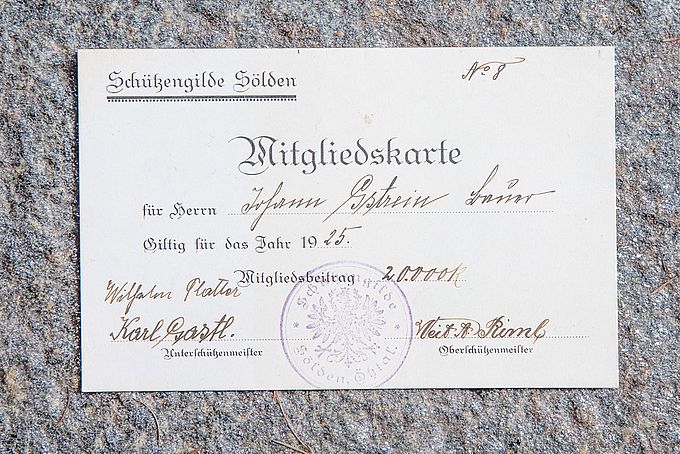 Schützengilde Sölden
No 8
Mitgliedskarte
für Herrn Johann Gstrein Bauer
Giltig für das Jahr 1925.
Mitgliedsbeitrag 20000K
Wilhelm Platter
Karl Gastl.
Unterschützenmeister
Veit A Riml
Oberschützenmeister
Schützengilde
* Sölden, Ötztal. *